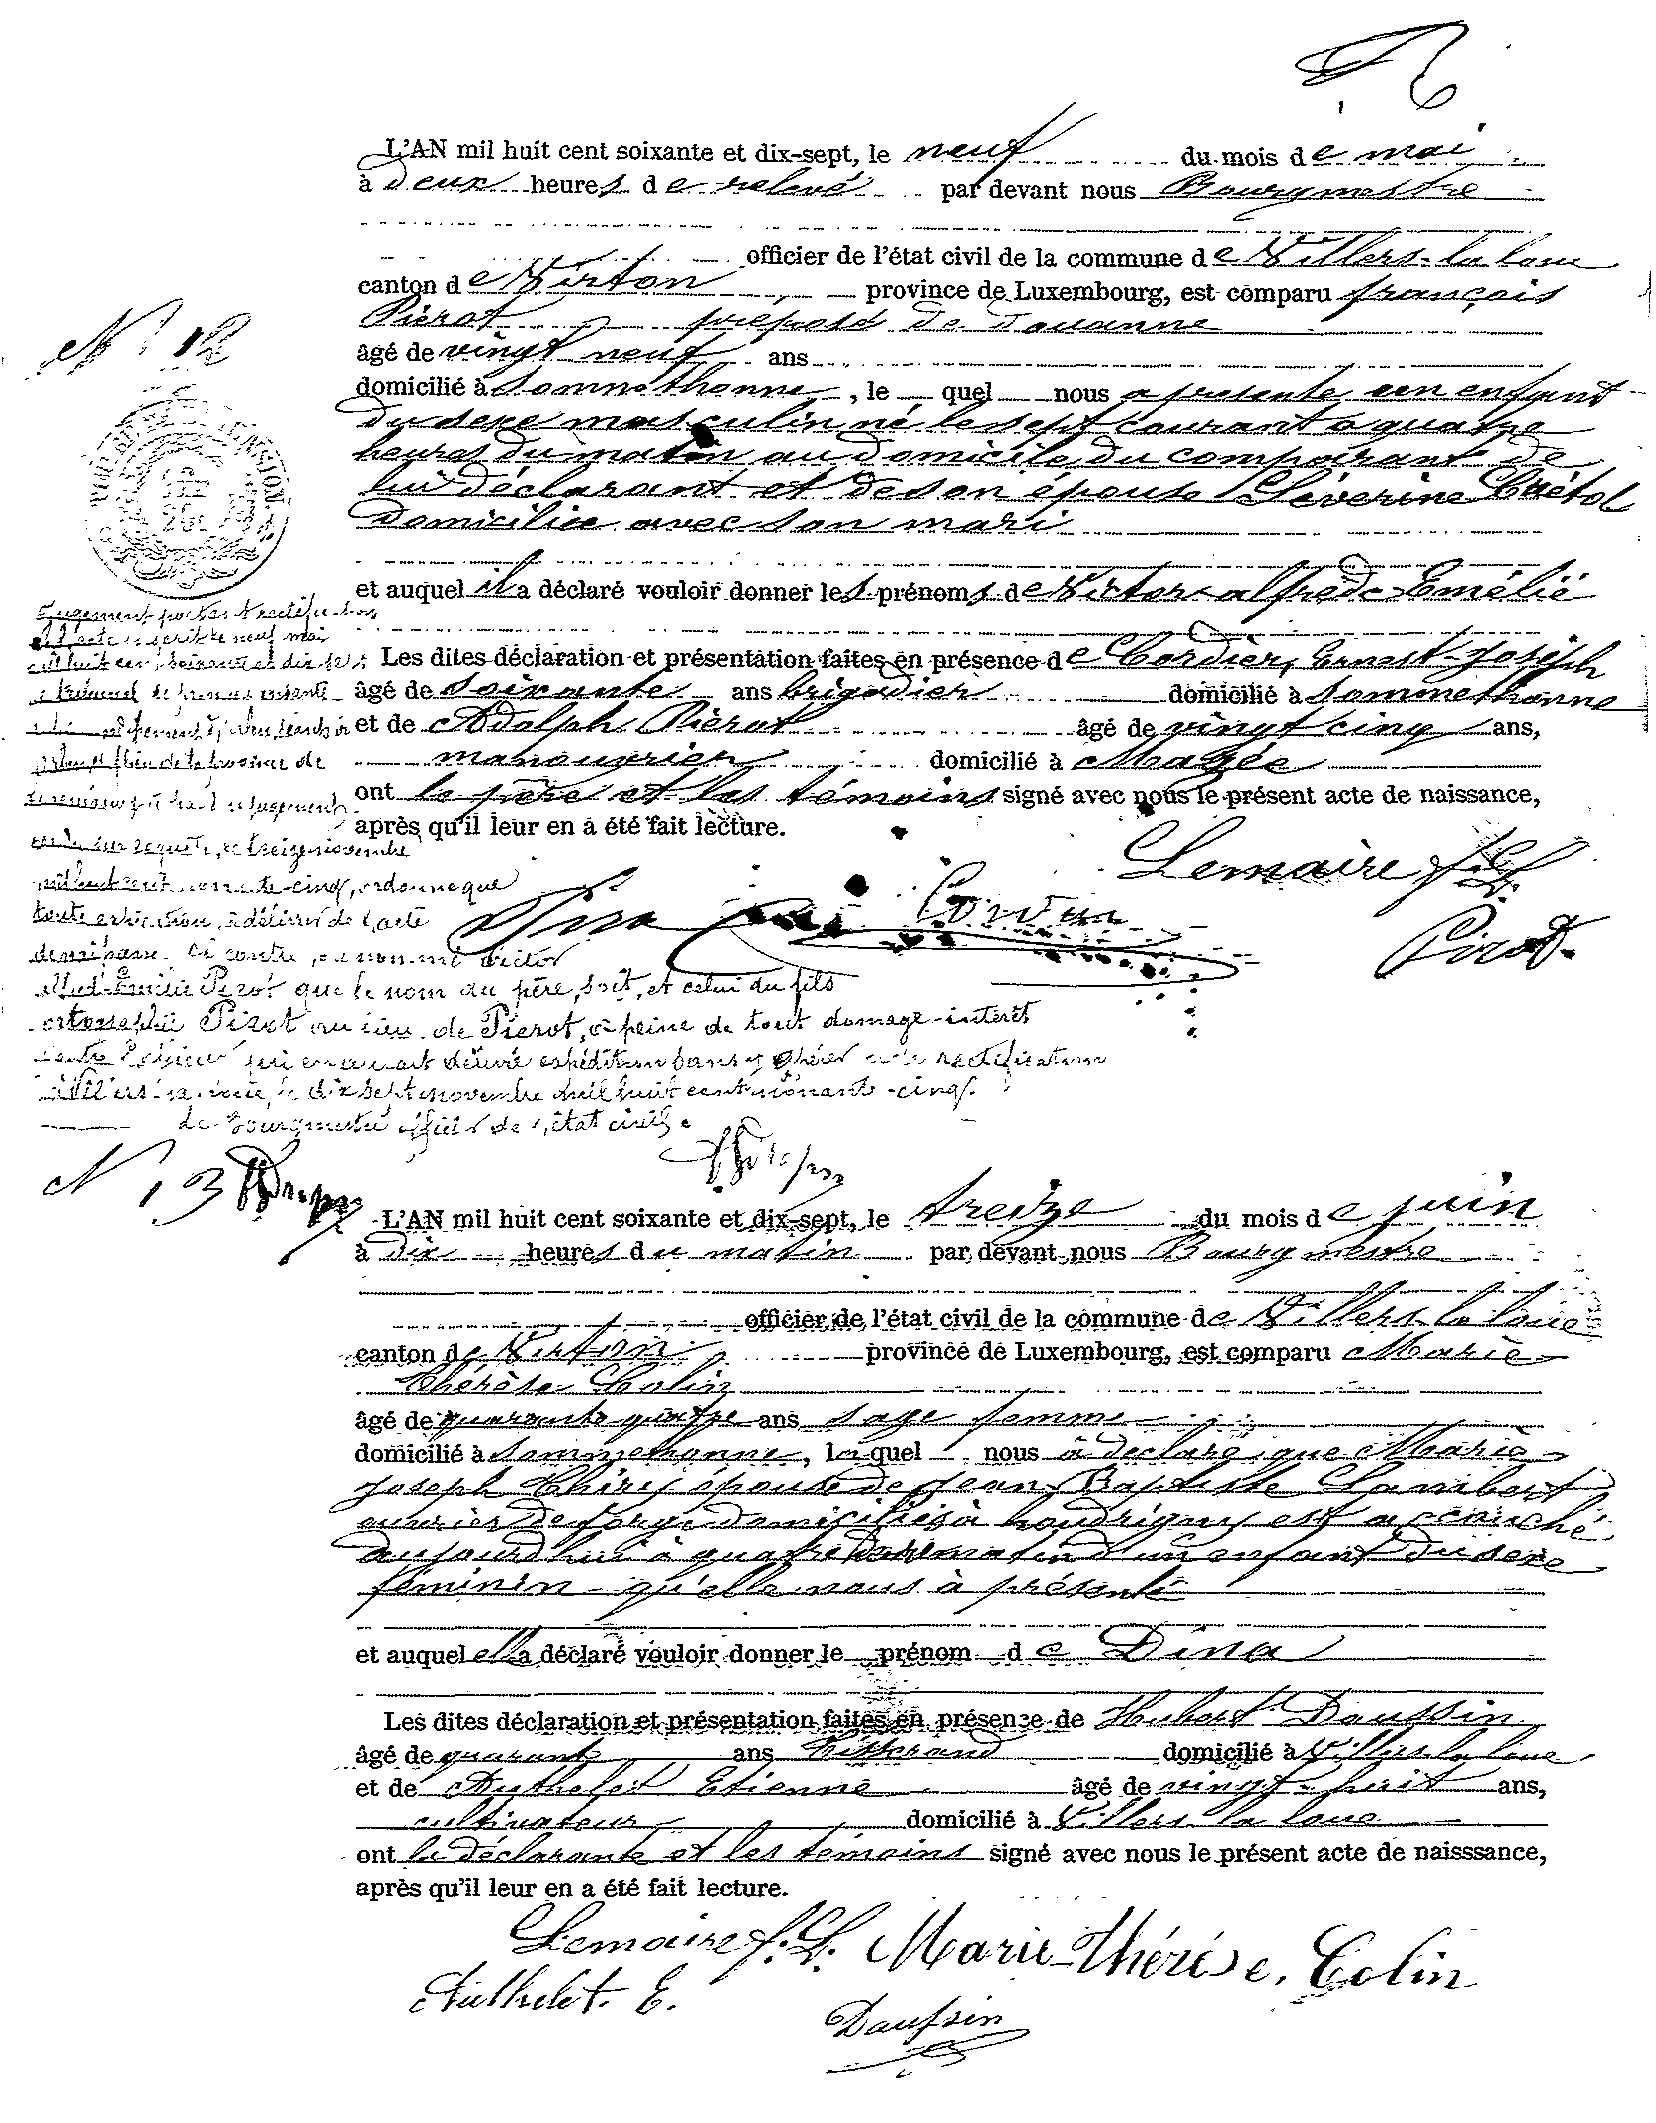 L'AN mil huit cent soixante et dix-sept, le neuf du mois de mai
à deux heures de relevé par devant nous Bourgmestre
officier de l'état civil de la commune de Villers-la-loue
canton de Virton province de Luxembourg, est comparu françois
Piérot préposé de douanne
âgé de vingt neuf ans
domicilié à Sommethonne, le quel nous a présenté un enfant
du sexe masculin né le sept courant a quatre
heures du matin au domicile du comparant de
lui déclarant et de son épouse Séverine
domiciliée avec son mari
et auquel il a déclaré vouloir donner les prénoms de Victor alfrède Emélië
N° 12
Les dites déclaration et présentation faites en présence de Cordier, Ernest Joseph
âgé de soixante ans brigadier domicilié à Sommethonne
et de Adolph Piérot âgé de vingt cinq ans,
manouvrier domicilié à
ont le père et les témoins signé avec nous le présent acte de naissance,
après qu'il leur en a été fait lecture.
Lemaire f. L.
Pierot
Jugement portant rectification
de l'acte inscrit le neuf mai
mil huit cent soixante et dix sept
le tribunal de première instance
province de
jugement
rendu sur requête, le treize novembre
mil huit cent nonante-cinq, ordonne que
toute extraction, à délivrer de l'acte
de naissance ci contre, Victor
Alfred-Emilie Pirot que le nom du père, soit, et celui du fils
ortographié Pirot au lieu de Pierot, à peine de tout domage-intérêt
contre l'officier qui en aurait délivré expédition sans y rectification
Villers-la-loue, le dix sept novembre mil huit cent nonante-cinq.
Le Bourgmestre officier de l'état civil
N° 13
L'AN mil huit cent soixante et dix-sept, le treize du mois de juin
à dix heures du matin par devant nous Bourgmestre
officier de l'état civil de la commune de Villers-la-loue
canton de Virton province de Luxembourg, est comparu Marie
Thérèse Colin
âgé de quarante quatre ans sage femme
domicilié à Sommethonne, la quel nous à déclaré que Marie
Joseph Thiry épouse de Jean Baptiste Lambert
ouvrier de forge domiciliés à houdrigny est accouché
aujourdhui à quatre du matin d'un enfant du sexe
féminin qu'elle nous à présenté
et auquel ella déclaré vouloir donner le prénom de Dina
Les dites déclaration et présentation faites en présence de Hubert Daussin
âgé de quarante ans domicilié à Villers-la-loue
et de Authelet Etienne âgé de vingt-huit ans,
cultivateur domicilié à Villers-la-loue
ont la déclarante et les témoins signé avec nous le présent acte de naisssance,
après qu'il leur en a été fait lecture.
Lemaire f. L. Marie-Thérèse, Colin
Authelet. E.
Daussin